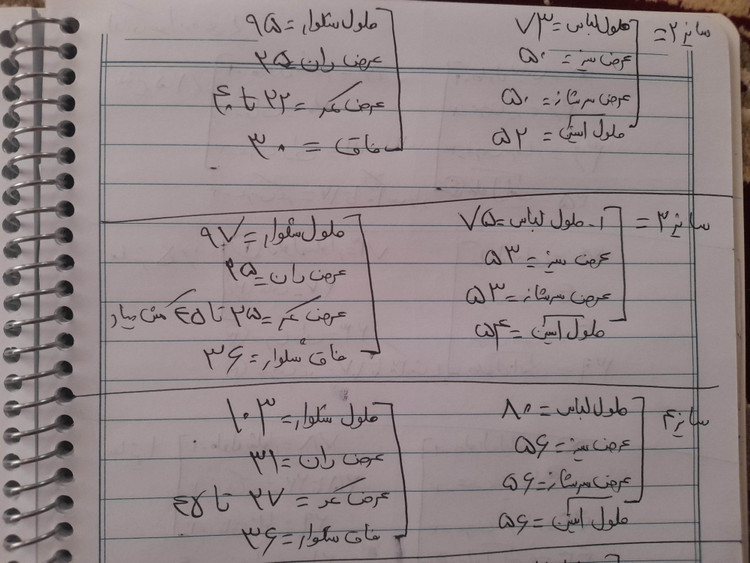 سایز ۲ = طول لباس = ۷۳
عرض سینه = ۵۰
عرض سرشانه = ۵۰
طول آستین = ۵۲
طول شلوار = ۹۵
عرض ران = ۲۵
عرض کمر = ۲۲ تا ۴۰
فاق = ۳۰
سایز ۳ = ۱. طول لباس = ۷۵
عرض سینه = ۵۳
عرض سرشانه = ۵۳
طول آستین = ۵۴
طول شلوار = ۹۷
عرض ران = ۲۵
عرض کمر = ۲۵ تا ۴۵ کش میاد
فاق شلوار = ۳۶
سایز ۴ طول لباس = ۸۰
عرض سینه = ۵۶
عرض سرشانه = ۵۶
طول آستین = ۵۶
طول شلوار = ۱۰۳
عرض ران = ۳۱
عرض کمر = ۲۷ تا ۴۵
فاق شلوار = ۳۶